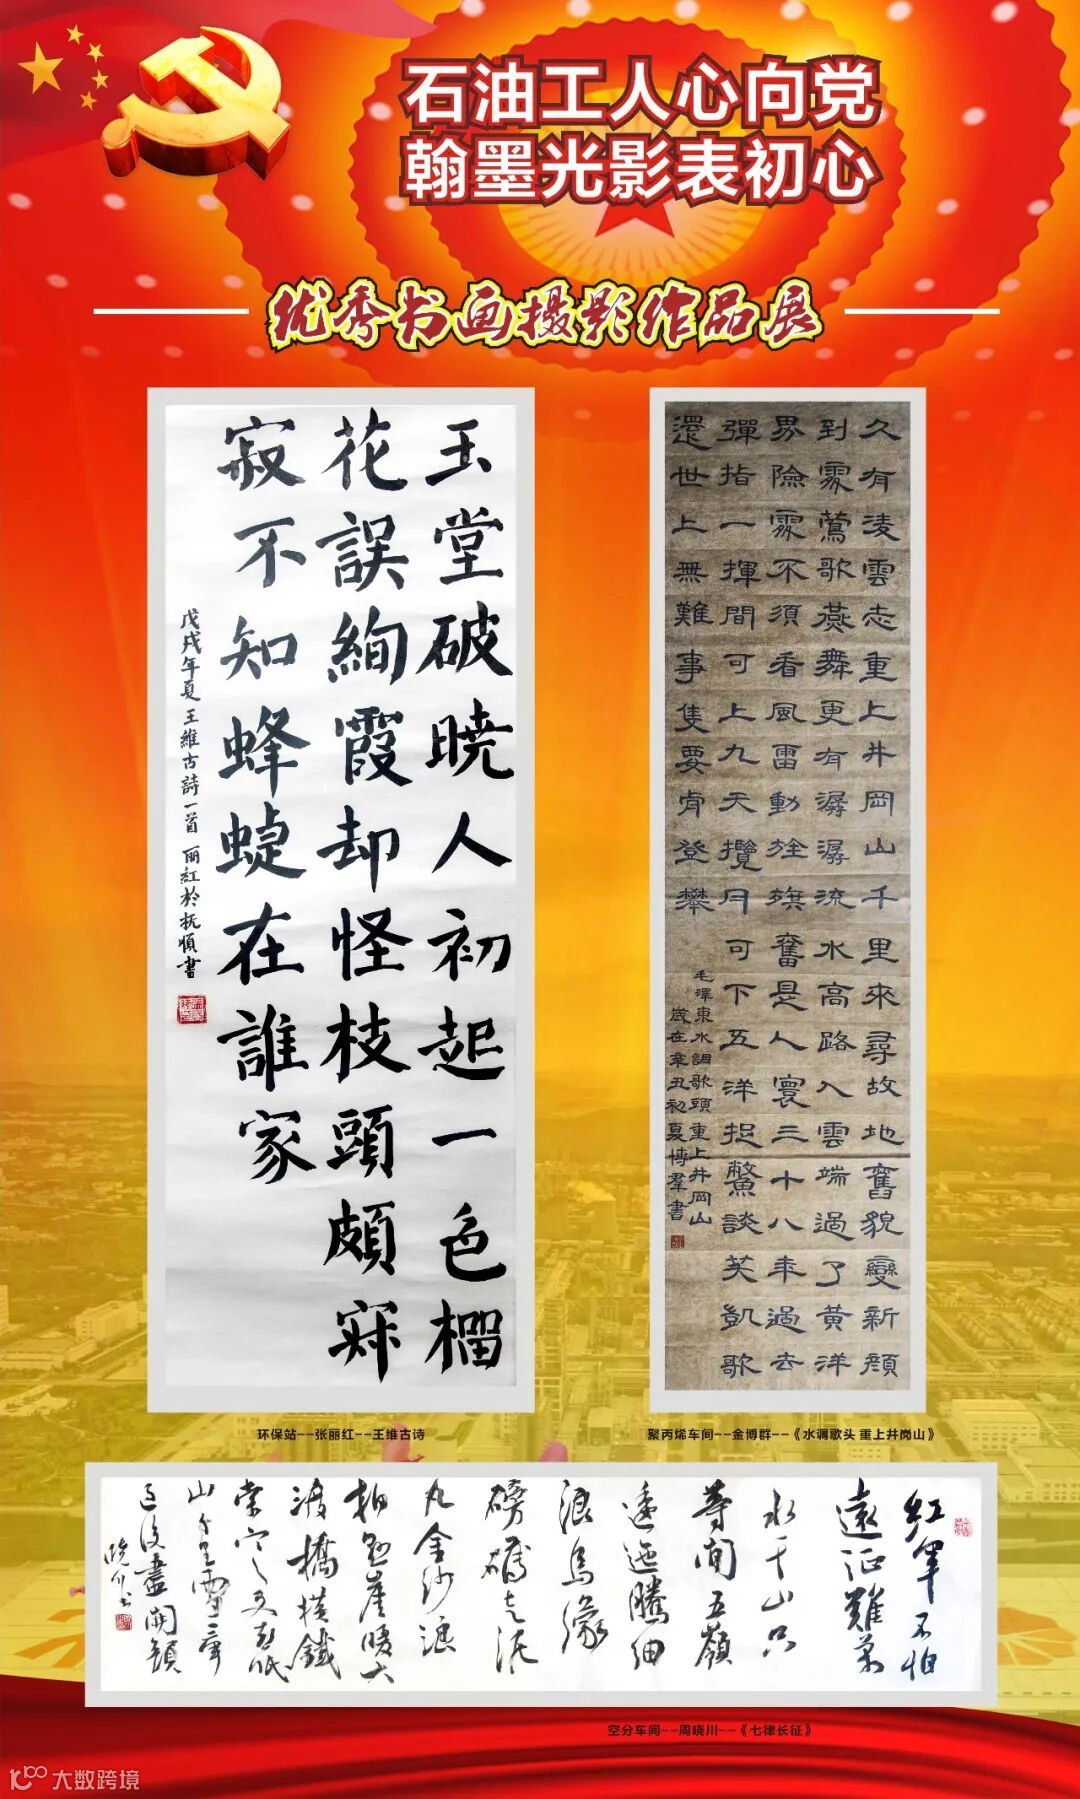 石油工人心向党
翰墨光影表初心
优秀书画摄影作品展
玉堂破曉人初起一色榴
花誤絢霞却怪枝頭頗
寂不知蜂蝶在誰家
戊戌年夏王維古詩一首丽红於抚順書
久有凌雲志重上井岡山千里來尋故地舊貌變新顔
到處鶯歌燕舞更有潺潺流水高路入雲端過了黄洋
界險處不須看風雷動旌旗奮是人寰三十八年過去
彈指一揮間可上九天攬月可下五洋捉鱉談笑凱歌
還世上無難事隻要肯登攀
毛澤東水調歌頭重上井岡山
歲在辛丑初夏博群書
环保站--张丽红--王维古诗
聚丙烯车间--金博群--《水调歌头 重上井岗山》
红軍不怕
遠征難萬
水千山只
等閒五嶺
逶迤騰細
浪烏蒙
磅礴走泥
丸金沙浪
拍懸崖暖大
渡橋橫鐵
索寒更喜岷
山千里雪三軍
過後盡開顏
曉川书
空分车间--周晓川--《七律长征》
大数跨境